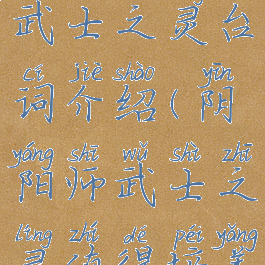 武士之灵台
cí jiè shào yīn
词介绍(阴
yáng shī wǔ shì zhī
阳师武士之
líng zhí dé péi yǎng
灵值得培养